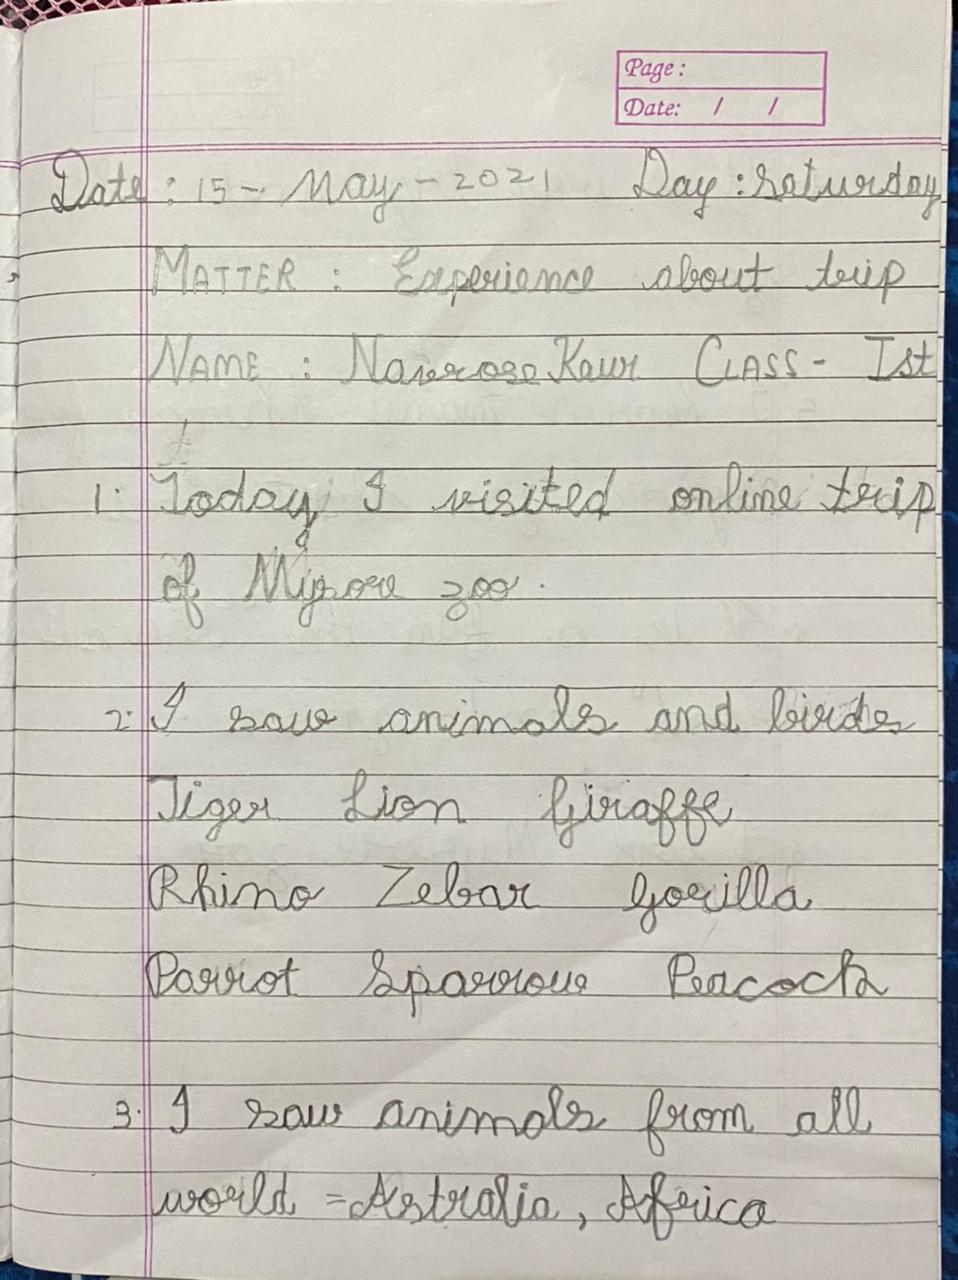 Page:
Date: / /
Date: 15- May-2021 Day: Saturday
MATTER : Experience about trip
NAME : Kaur CLASS- Ist
1. Today, I visited online trip
of Mysore zoo.
2. I saw animals and birds
Tiger Lion Giraffe
Rhino Zebar Gorilla
Parrot Sparrow Peacock
3. I saw animals from all
world = Astralia, Africa